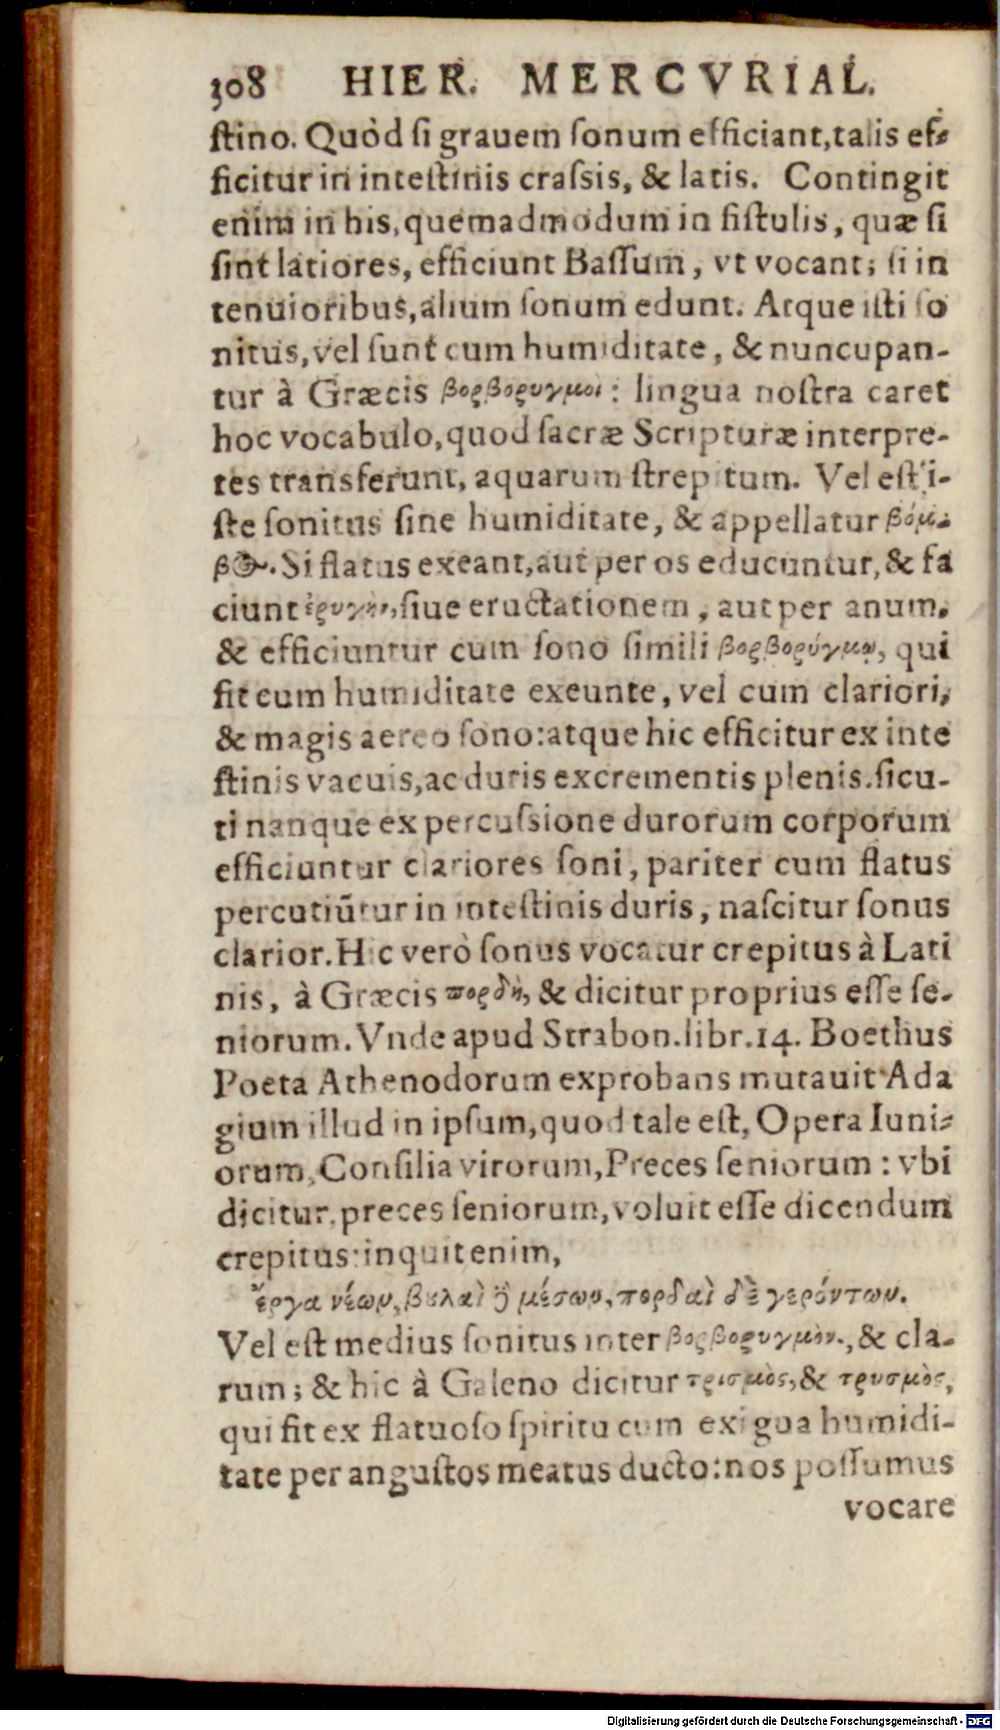 308 HIER. MERCVRIAL.
ſtino. Quòd ſi grauem ſonum efficiant, talis ef-
ficitur in inteſtinis craſsis, & latis. Contingit
enim in his, quemadmodum in fiſtulis, quæ ſi
ſint latiores, efficiunt Baſſum, vt vocant; ſi in
tenuioribus, alium ſonum edunt. Atque iſti ſo
nitus, vel ſunt cum humiditate, & nuncupan-
tur à Græcis βορβορυγμοὶ: lingua noſtra caret
hoc vocabulo, quod ſacræ Scripturæ interpre-
tes transferunt, aquarum ſtrepitum. Vel eſt i-
ſte ſonitus ſine humiditate, & appellatur βόμ-
βος. Si flatus exeant, aut per os educuntur, & fa
ciunt ἐρυγὴν, ſiue eructationem, aut per anum,
& efficiuntur cum ſono ſimili βορβορύγμῳ, qui
fit cum humiditate exeunte, vel cum clariori,
& magis aereo ſono: atque hic efficitur ex inte
ſtinis vacuis, ac duris excrementis plenis. ſicu-
ti nanque ex percuſsione durorum corporum
efficiuntur clariores ſoni, pariter cum flatus
percutiūtur in inteſtinis duris, naſcitur ſonus
clarior. Hic verò ſonus vocatur crepitus à Lati
nis, à Græcis πορδὴ, & dicitur proprius eſſe ſe-
niorum. Vnde apud Strabon. libr. 14. Boethus
Poeta Athenodorum exprobans mutauit Ada
gium illud in ipſum, quod tale eſt, Opera Iuni-
orum, Conſilia virorum, Preces ſeniorum: vbi
dicitur, preces ſeniorum, voluit eſſe dicendum
crepitus: inquit enim,
ἔργα νέων, βȣλαὶ δὲ μέσων, πορδαὶ δὲ γερόντων.
Vel eſt medius ſonitus inter βορβορυγμὸν, & cla-
rum; & hic à Galeno dicitur τρισμὸς, & τρυσμὸς,
qui fit ex flatuoſo ſpiritu cum exigua humidi-
tate per anguſtos meatus ducto: nos poſſumus
vocare
Digitalisierung gefördert durch die Deutsche Forschungsgemeinschaft - DFG